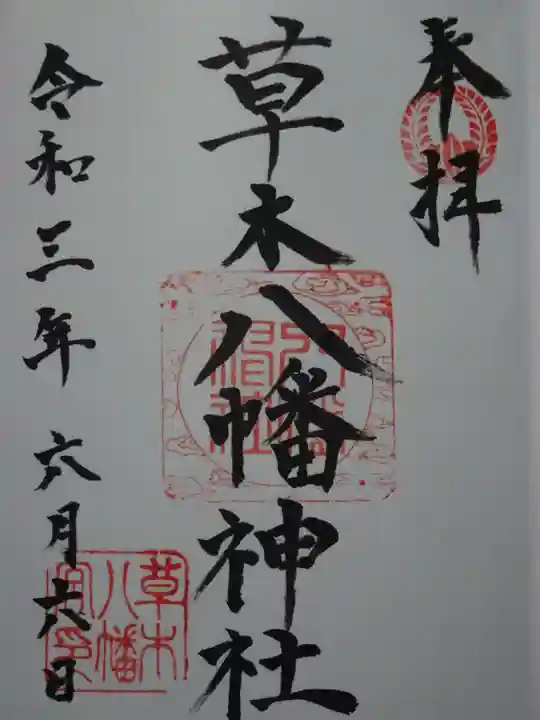 奉拝
草木八幡神社
令和三年 六月六日
草木
八幡
宮印